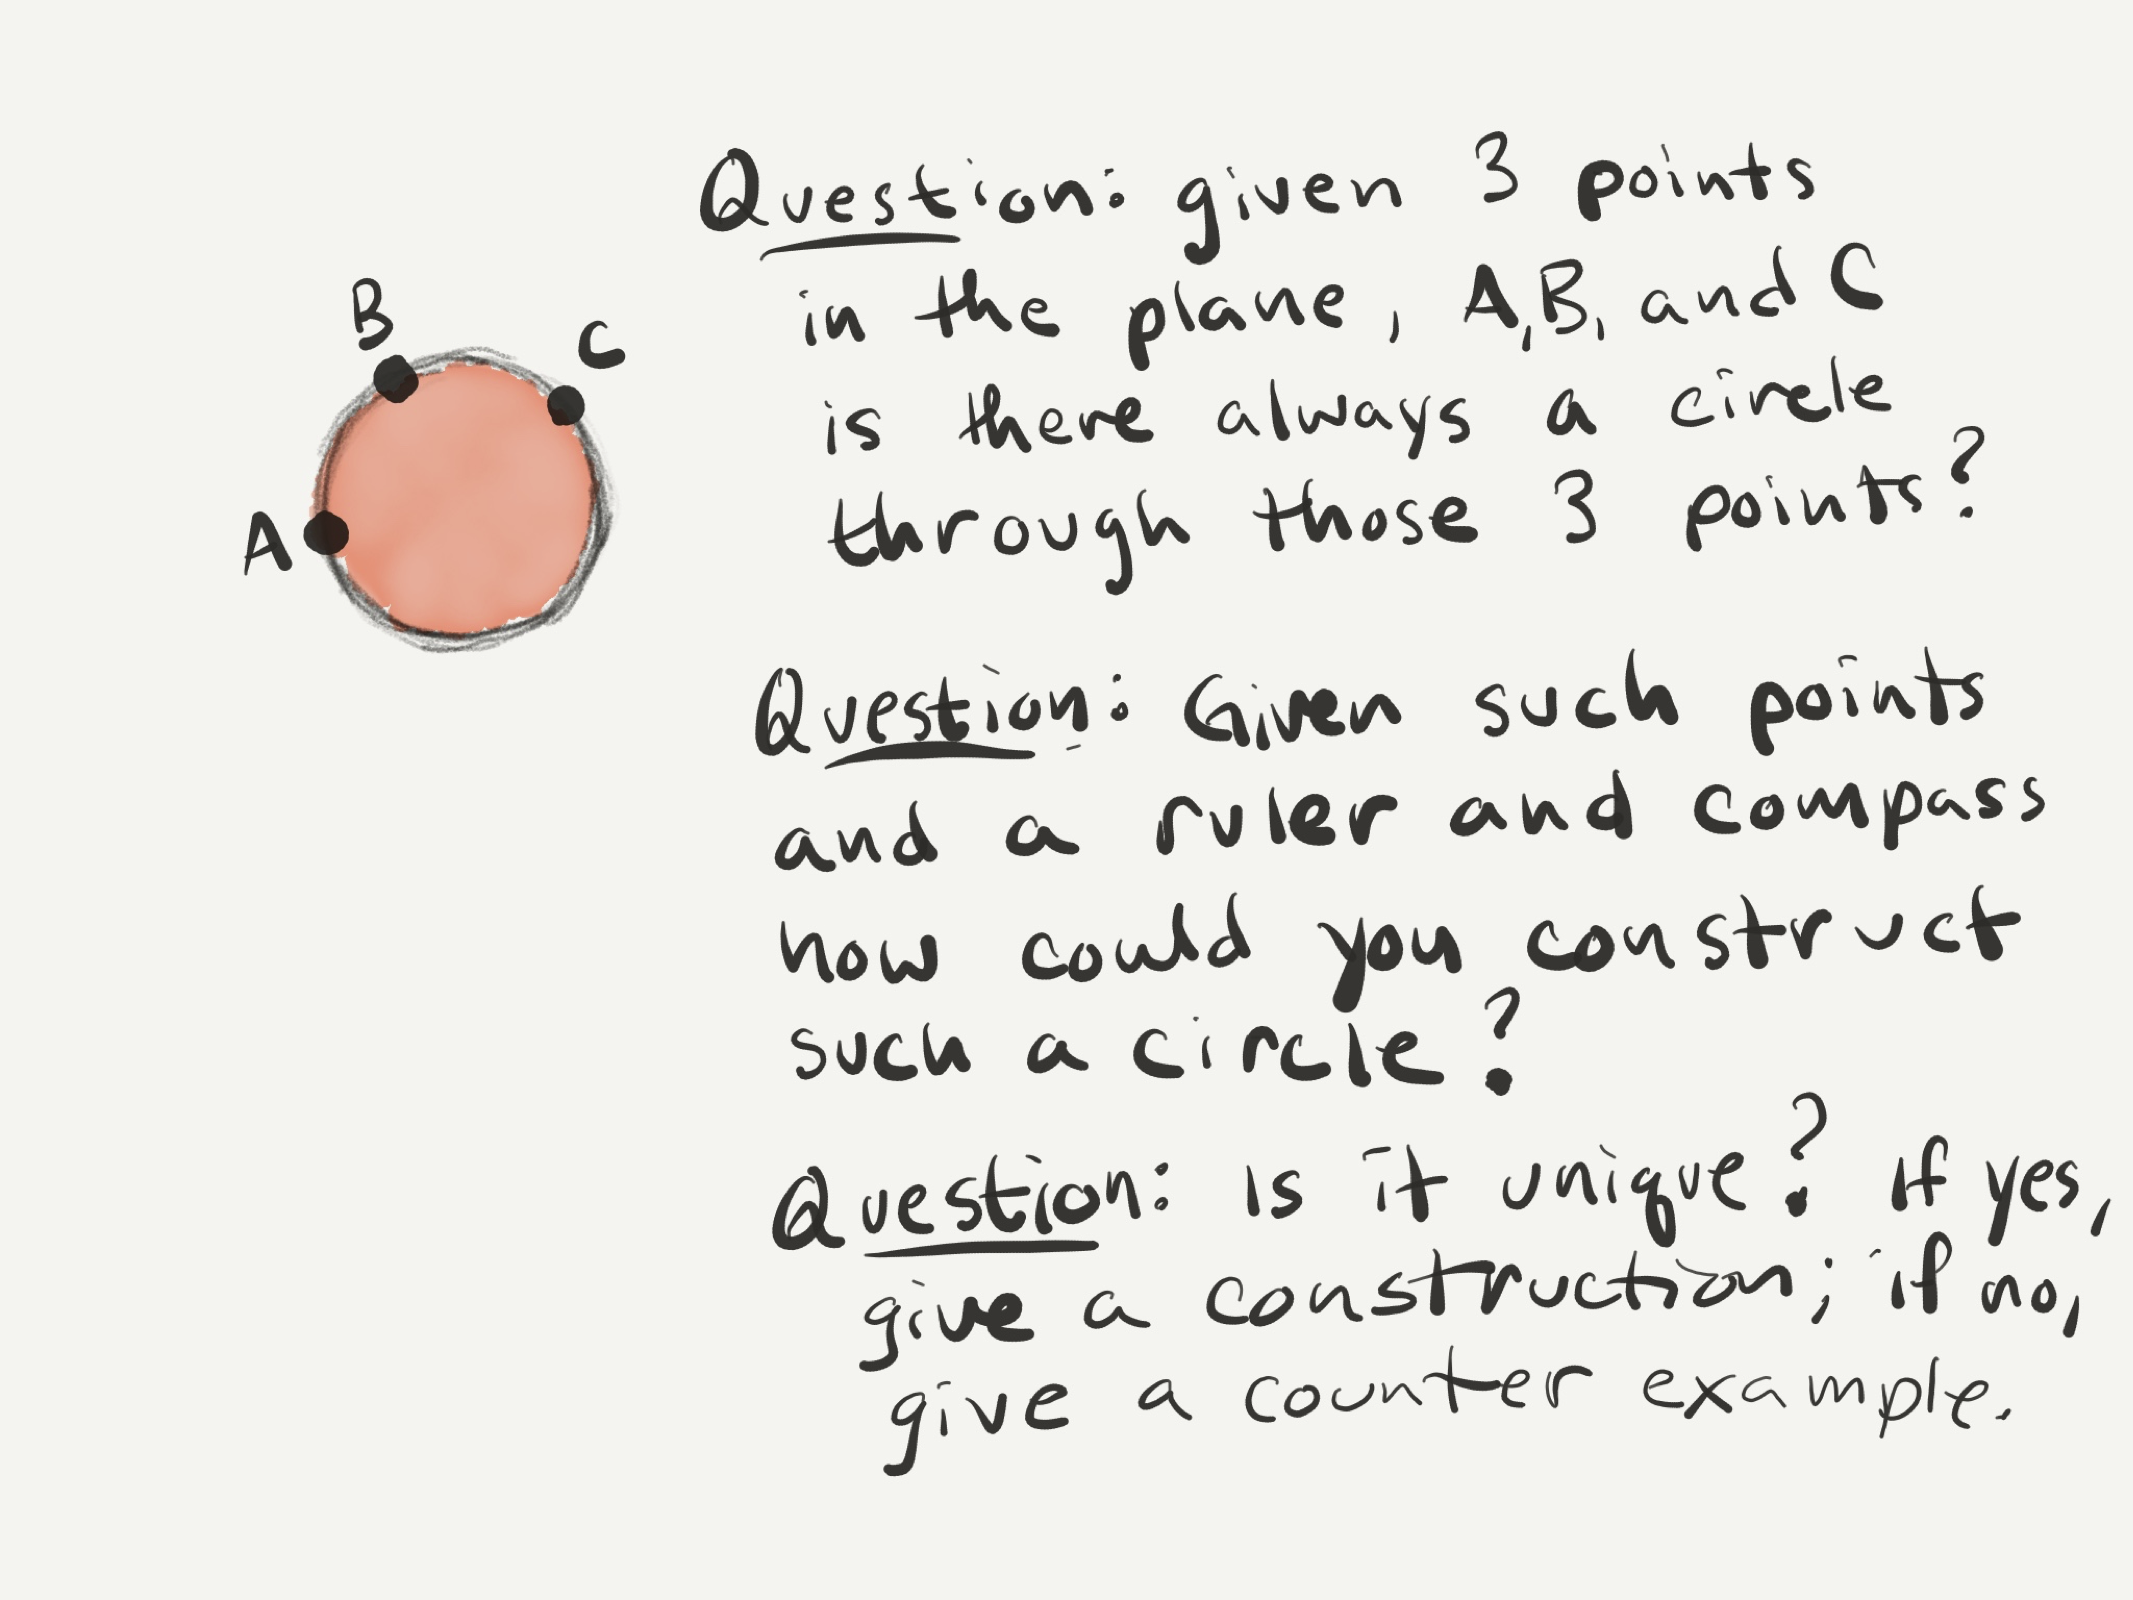 B
C
A
Question: given 3 points
in the plane, A, B, and C
is there always a circle
through those 3 points?
Question: Given such points
and a ruler and compass
how could you construct
such a circle?
Question: Is it unique? If yes,
give a construction; if no,
give a counter example.